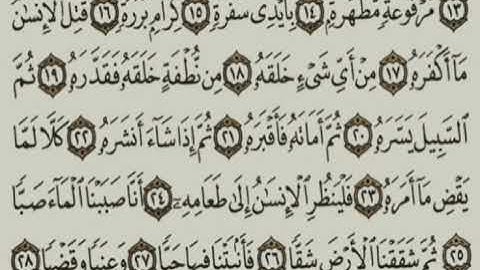 ١٣ مَّرْفُوعَةٍ مُّطَهَّرَةٍ ١٤ بِأَيْدِى سَفَرَةٍ ١٥ كِرَامٍ بَرَرَةٍ ١٦ قُتِلَ ٱلْإِنسَٰنُ
مَآ أَكْفَرَهُۥ ١٧ مِنْ أَىِّ شَىْءٍ خَلَقَهُۥ ١٨ مِن نُّطْفَةٍ خَلَقَهُۥ فَقَدَّرَهُۥ ١٩ ثُمَّ
ٱلسَّبِيلَ يَسَّرَهُۥ ٢٠ ثُمَّ أَمَاتَهُۥ فَأَقْبَرَهُۥ ٢١ ثُمَّ إِذَا شَآءَ أَنشَرَهُۥ ٢٢ كَلَّا لَمَّا
يَقْضِ مَآ أَمَرَهُۥ ٢٣ فَلْيَنظُرِ ٱلْإِنسَٰنُ إِلَىٰ طَعَامِهِۦٓ ٢٤ أَنَّا صَبَبْنَا ٱلْمَآءَ صَبًّا
٢٥ ثُمَّ شَقَقْنَا ٱلْأَرْضَ شَقًّا ٢٦ فَأَنۢبَتْنَا فِيهَا حَبًّا ٢٧ وَعِنَبًا وَقَضْبًا ٢٨